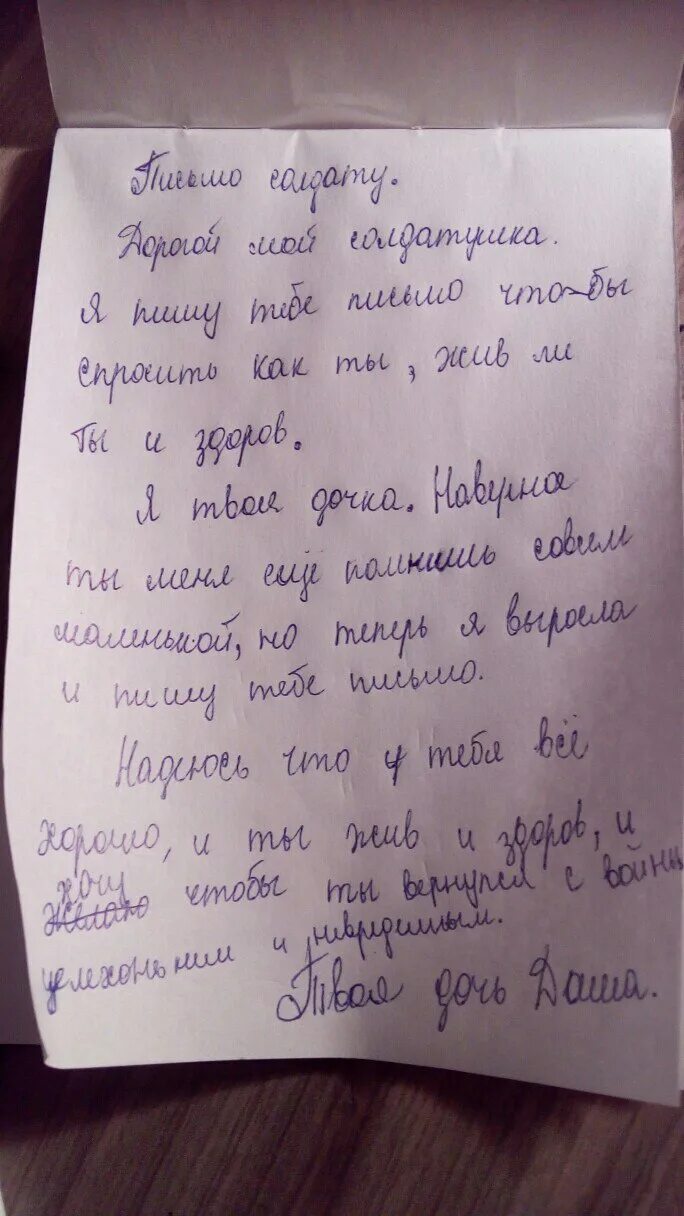 Письмо солдату.
Дорогой мой солдатушка.
Я пишу тебе письмо что-бы
спросить как ты, жив ли
ты и здоров.
Я твоя дочка. Наверное
ты меня ещё помнишь совсем
маленькой, но теперь я выросла
и пишу тебе письмо.
Надеюсь что у тебя всё
хорошо, и ты жив и здоров, и
хочу
желаю чтобы ты вернулся с войны
целехоньким и невредимым.
Твоя дочь Даша.